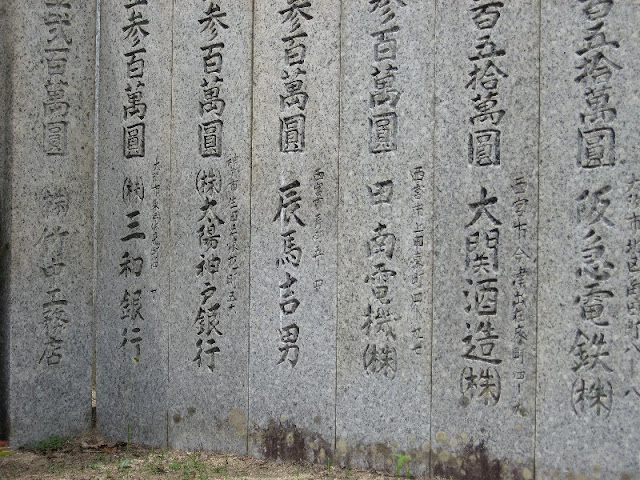 百五拾萬圓 阪急電鉄(株)
百五拾萬圓 大関酒造(株)
西宮市今津出在家町四ー九
参百萬圓 田南電機(株)
参百萬圓 辰馬吉男
参百萬圓 (株)太陽神戸銀行
参百萬圓 (株)三和銀行
弐百萬圓 (株)竹中工務店